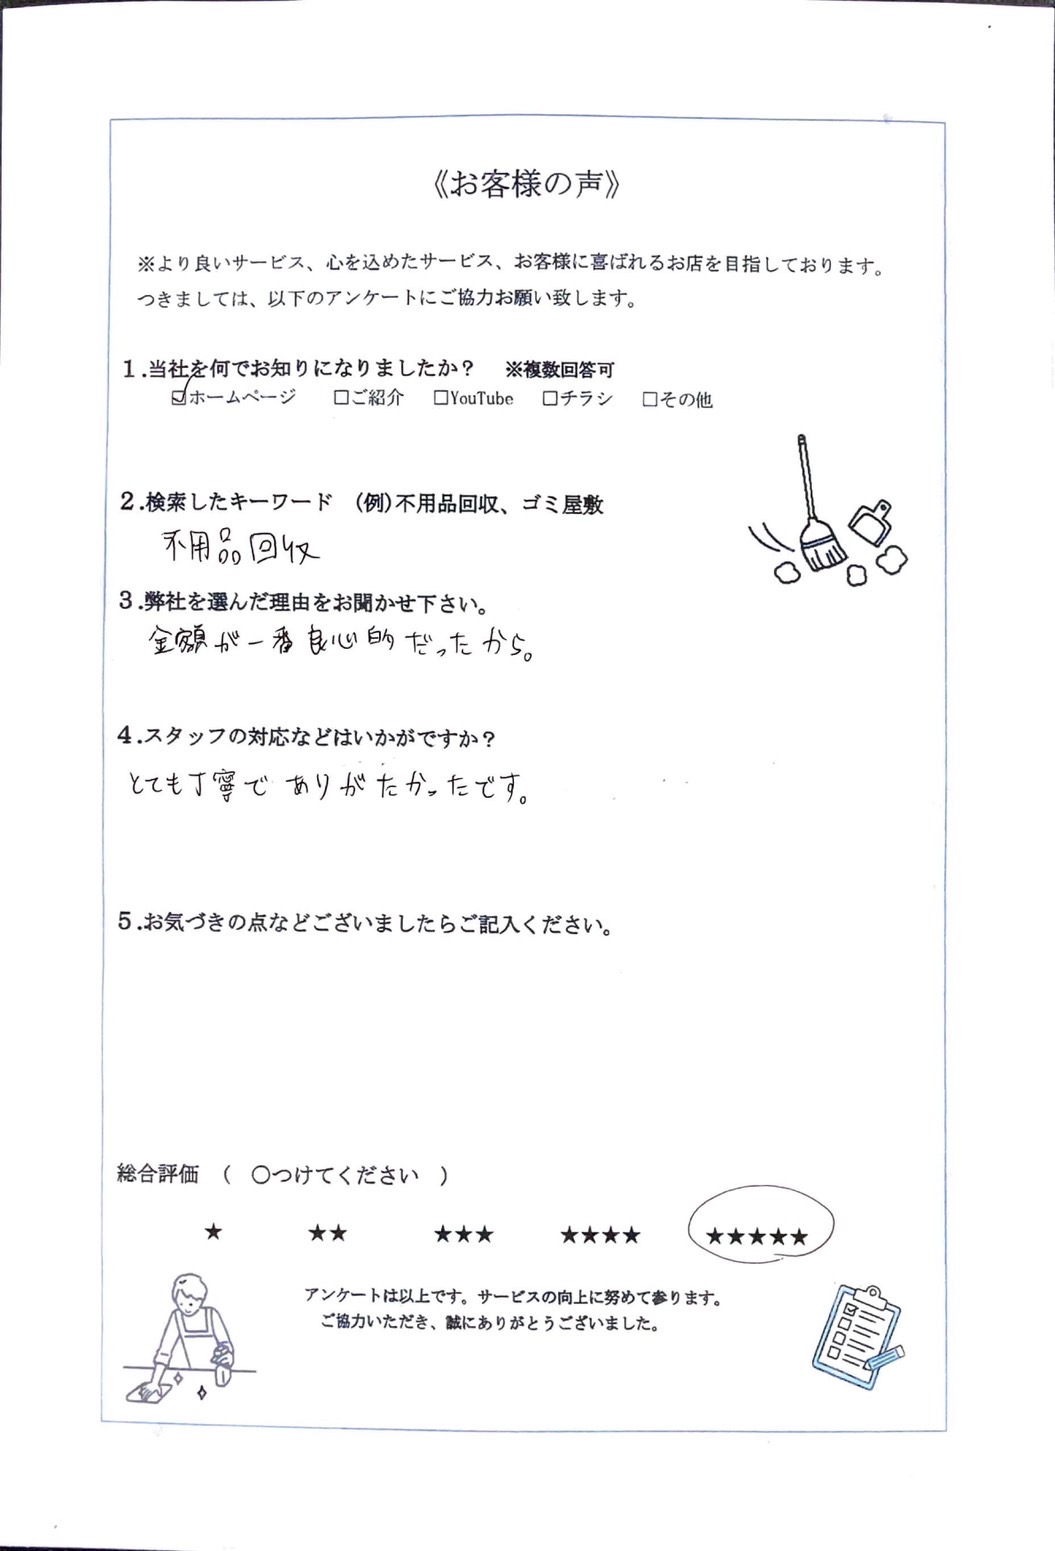 《お客様の声》
※より良いサービス、心を込めたサービス、お客様に喜ばれるお店を目指しております。
つきましては、以下のアンケートにご協力お願い致します。
1.当社を何でお知りになりましたか？　※複数回答可
☑ホームページ　□ご紹介　□YouTube　□チラシ　□その他
2.検索したキーワード　(例)不用品回収、ゴミ屋敷
不用品回収
3.弊社を選んだ理由をお聞かせ下さい。
金額が一番良心的だったから。
4.スタッフの対応などはいかがですか？
とても丁寧でありがたかったです。
5.お気づきの点などございましたらご記入ください。
総合評価　(　〇つけてください　)
★　★★　★★★　★★★★　★★★★★
アンケートは以上です。サービスの向上に努めて参ります。
ご協力いただき、誠にありがとうございました。